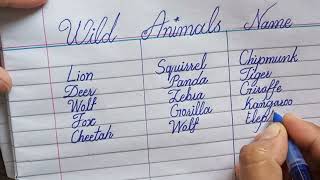 Wild Animals Name
Lion Squirrel Chipmunk
Deer Panda Tiger
Wolf Zebia Giraffe
Fox Gorilla Kangaroo
Cheetah Wolf Elep